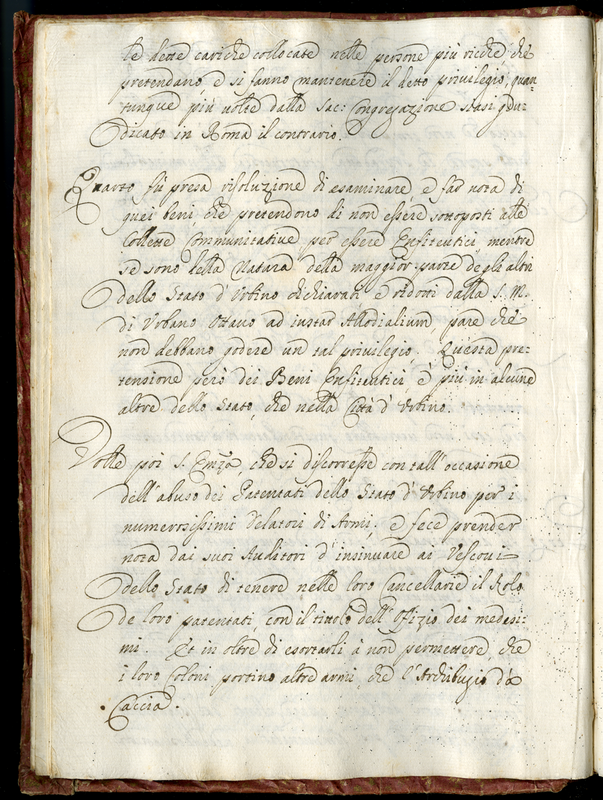 te dette cariche collocate nelle persone più ricche, che
pretendano, e si fanno mantenere il detto privilegio, quan-
tunque più volte dalla Sac: Congregazione stasi giu-
dicato in Roma il contrario.
Quarto fù presa risoluzione di esaminare e far nota di
quei beni, che pretendono di non essere sottoposti alle
Collette Communitative per essere Enfiteutici, mentre
se sono della Natura della maggior parte degli altri
dello Stato d'Urbino dichiarati, e ridotti dalla S. M.
di Urbano Ottavo ad instar Allodialium pare che
non debbano godere un tal privilegio. Questa pre-
tensione però dei Beni Enfiteutici è più in alcune
altre dello Stato, che nella Città d'Urbino.
Volle poi S. Emza, che si discorresse con tall'occasione
dell'abuso dei Patentati dello Stato d'Urbino per i
numerosissimi Delatori di Armi, e fece prender
nota dai suoi Auditori d'insinuare ai Vescovi
dello Stato di tenere nelle loro Cancellarie il Rolo
de loro patentati, con il titolo dell'Offizio dei medesi-
mi. Et in oltre di esortarli à non permettere, che
i loro Coloni portino altre armi, che l'Archibugio da
Caccia.